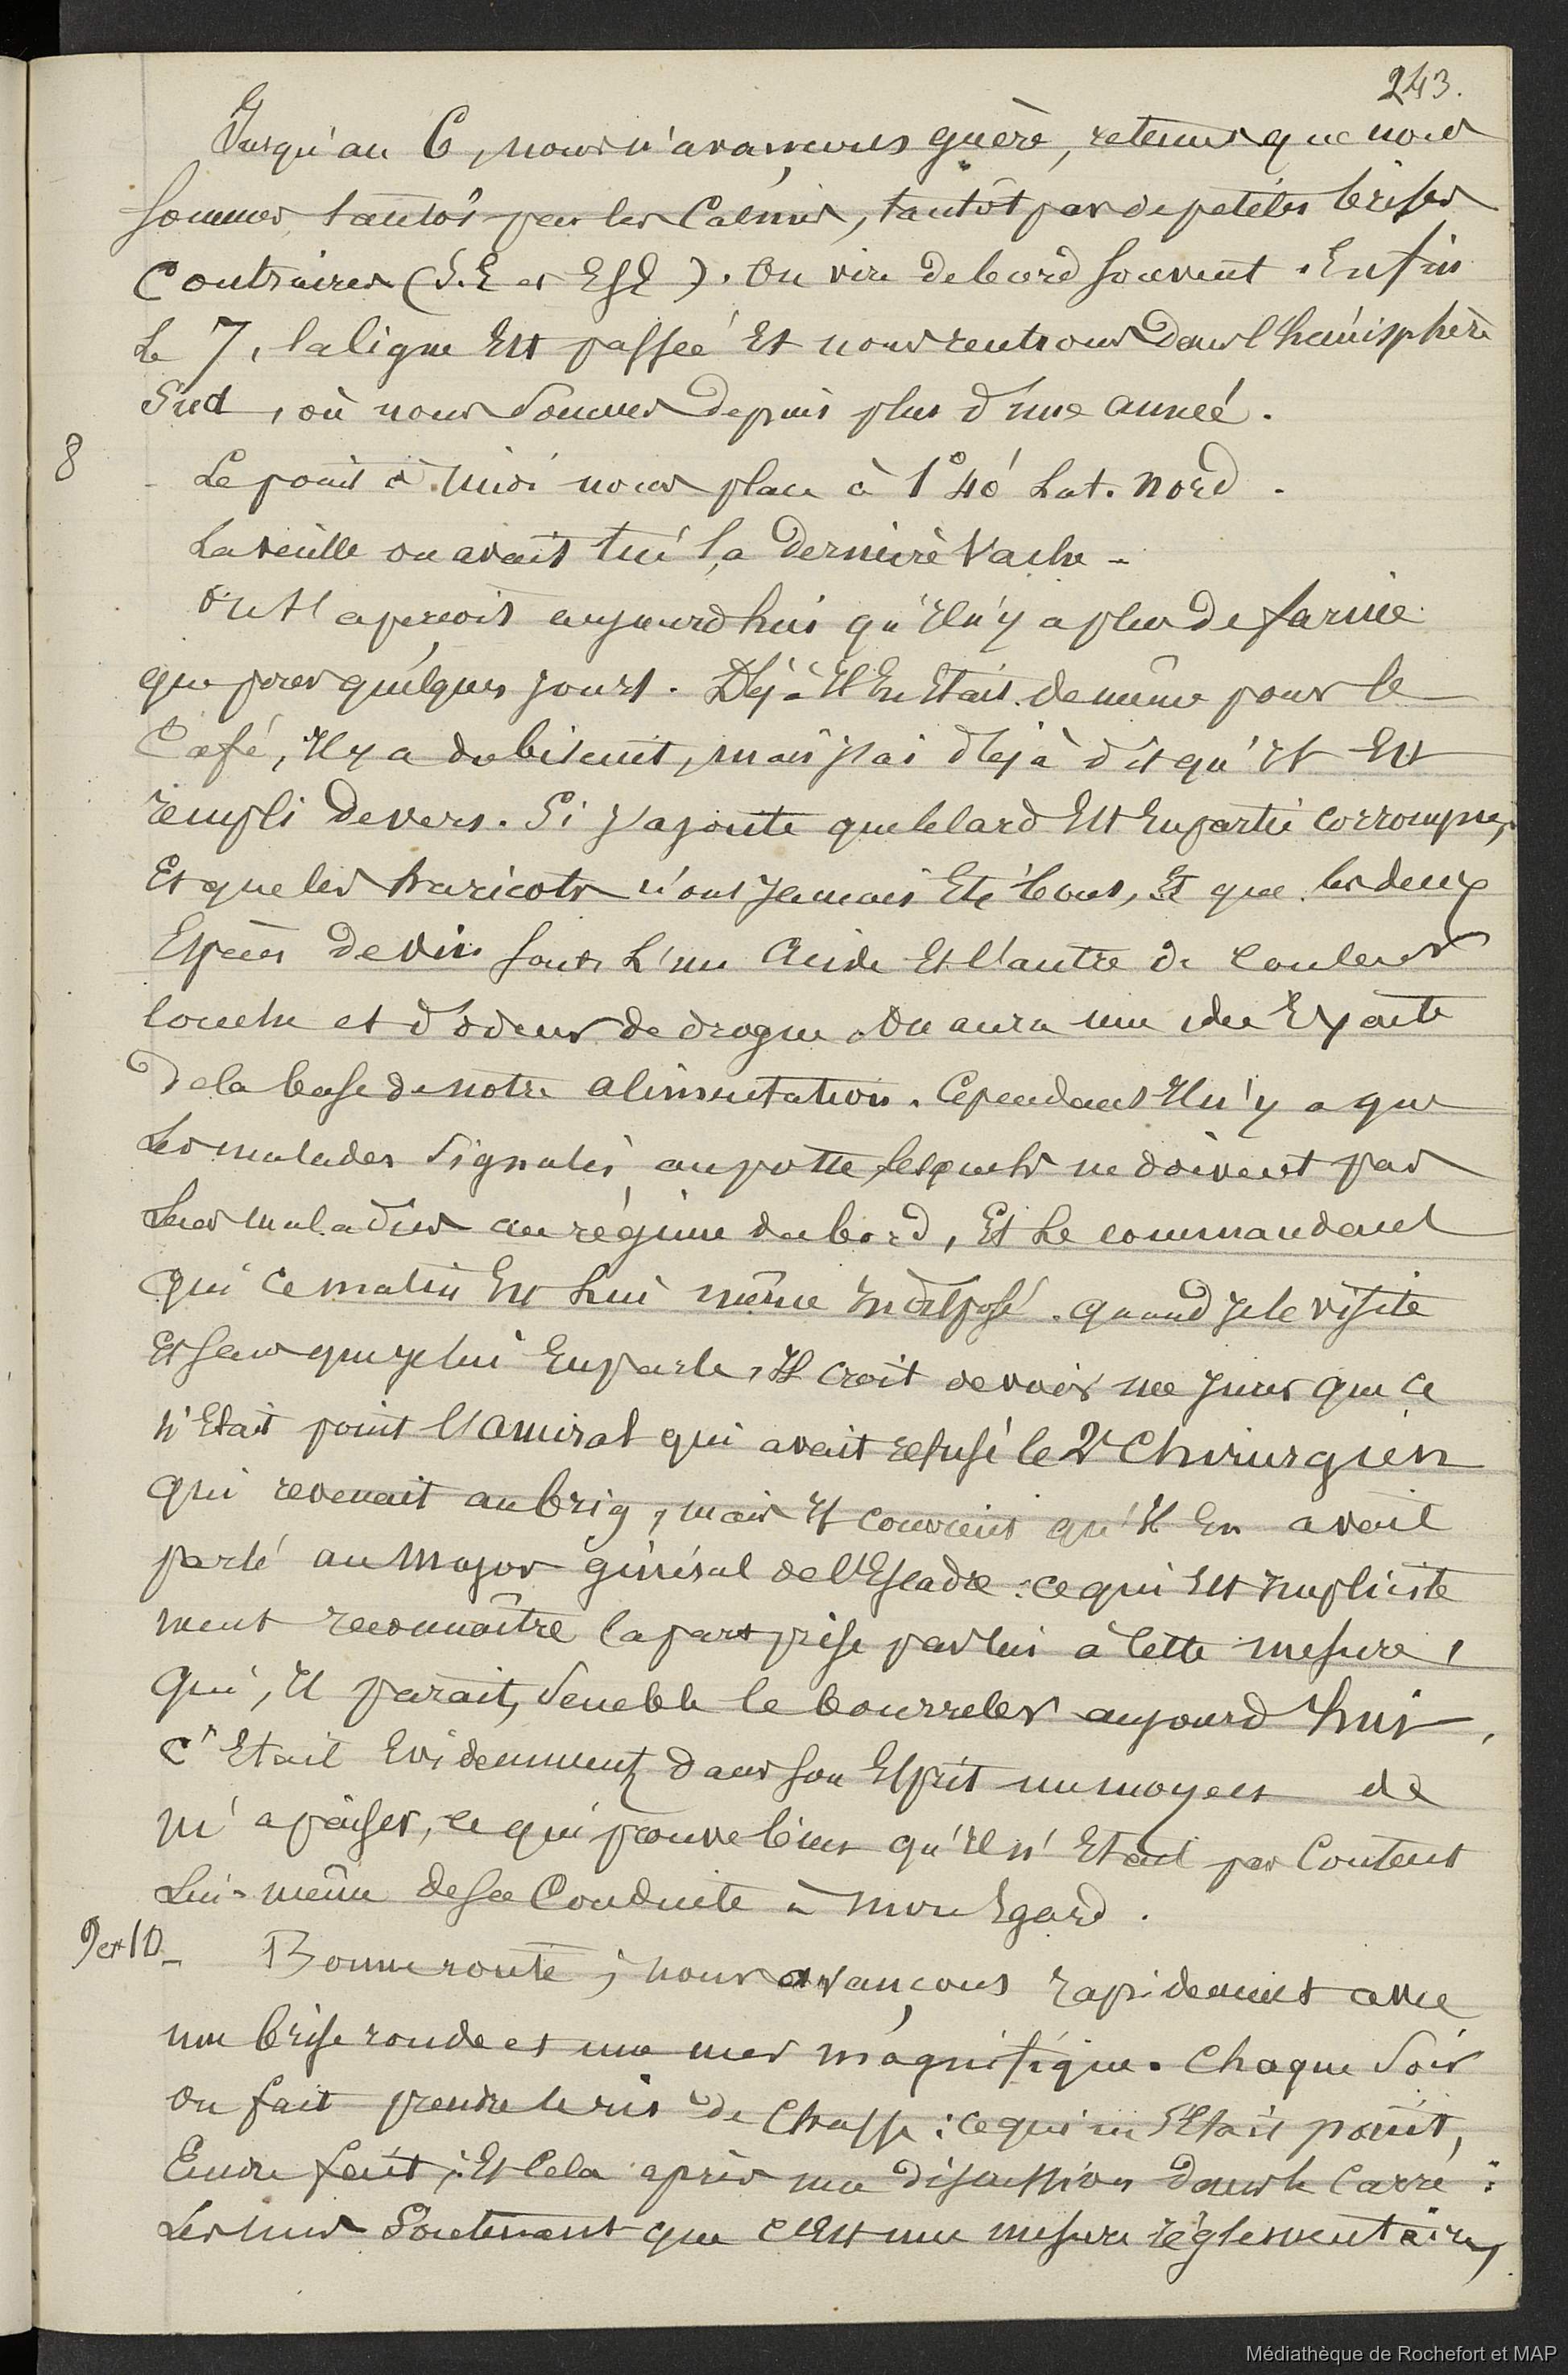 243.
Jusqu'au 6, nous n'avançons guère, retenus que nous
sommes tantôt par les Calmes, tantôt par de petites brises
Contraires (S.E et ESE). On vire de bord souvent. Enfin
Le 7, la ligne Est passée Et nous rentrons Dans l'hémisphère
Sud, où nous Sommes Depuis plus d'une année.
8
Le point à Midi nous place à 1° 40' Lat. Nord.
La veille on avait tué la Dernière Vache -
On s'aperçoit aujourd'hui qu'Il n'y a plus De farine
que pour quelques jours. Déjà Il En Etait de même pour le
Café, Il y a du biscuit, mais j'ai déjà dit qu'Il Est
rempli De vers. Si j'ajoute que le lard Est En partie corrompu,
Et que les haricots n'ont Jamais Eté bons, Et que les deux
Espèces De vin sont L'un Acide Et l'autre de couleur
louche et d'odeur de drogue On aura une idée Exacte
De la base de notre alimentation. Cependant Il n'y a que
Les malades Signalés au poste lesquels ne doivent pas
Leurs maladies au régime du bord, Et Le commandant
qui Ce matin Est Lui même Indisposé. quand je le visite
Et sans que je lui En parle, Il croit devoir me jurer que ce
n'Etait point l'amiral qui avait refusé le 2e Chirurgien
qui revenait au brig, mais Il convient qu'Il En avait
parlé au Major général de l'Escadre: ce qui Est Implicite
ment reconnaître la part prise par lui à Cette mesure,
qui, Il parait, Semble le bourreler aujourd'hui,
C'Etait Evidemment dans son Esprit un moyen de
m'apaiser, ce qui prouve bien qu'Il n'Etait pas Content
Lui-même de sa Conduite à mon Egard.
9 et 10 -
Bonne route ; nous avançons rapidement avec
une brise ronde et une mer magnifique. Chaque Soir
On fait prendre le ris de Chasse : ce qui ne s'Etait point,
Encore fait ; Et Cela après une Discussion Dans le Carré :
Les uns Soutiennent que c'Est une mesure réglementaire,
Médiathèque de Rochefort et MAP